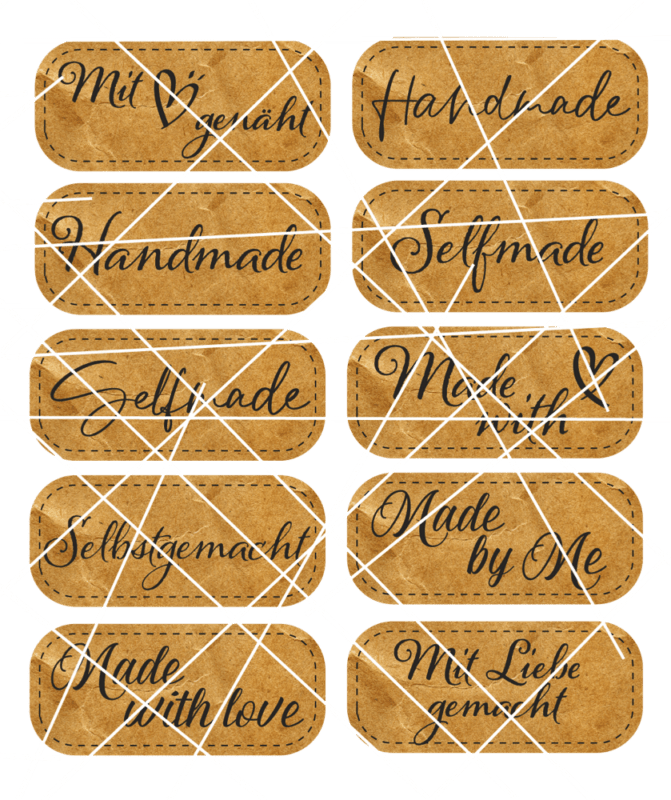 Mit ♡
genäht
Handmade
Handmade
Selfmade
Selfmade
Made
with ♡
Selbstgemacht
Made
by Me
Made
with love
Mit Liebe
gemacht